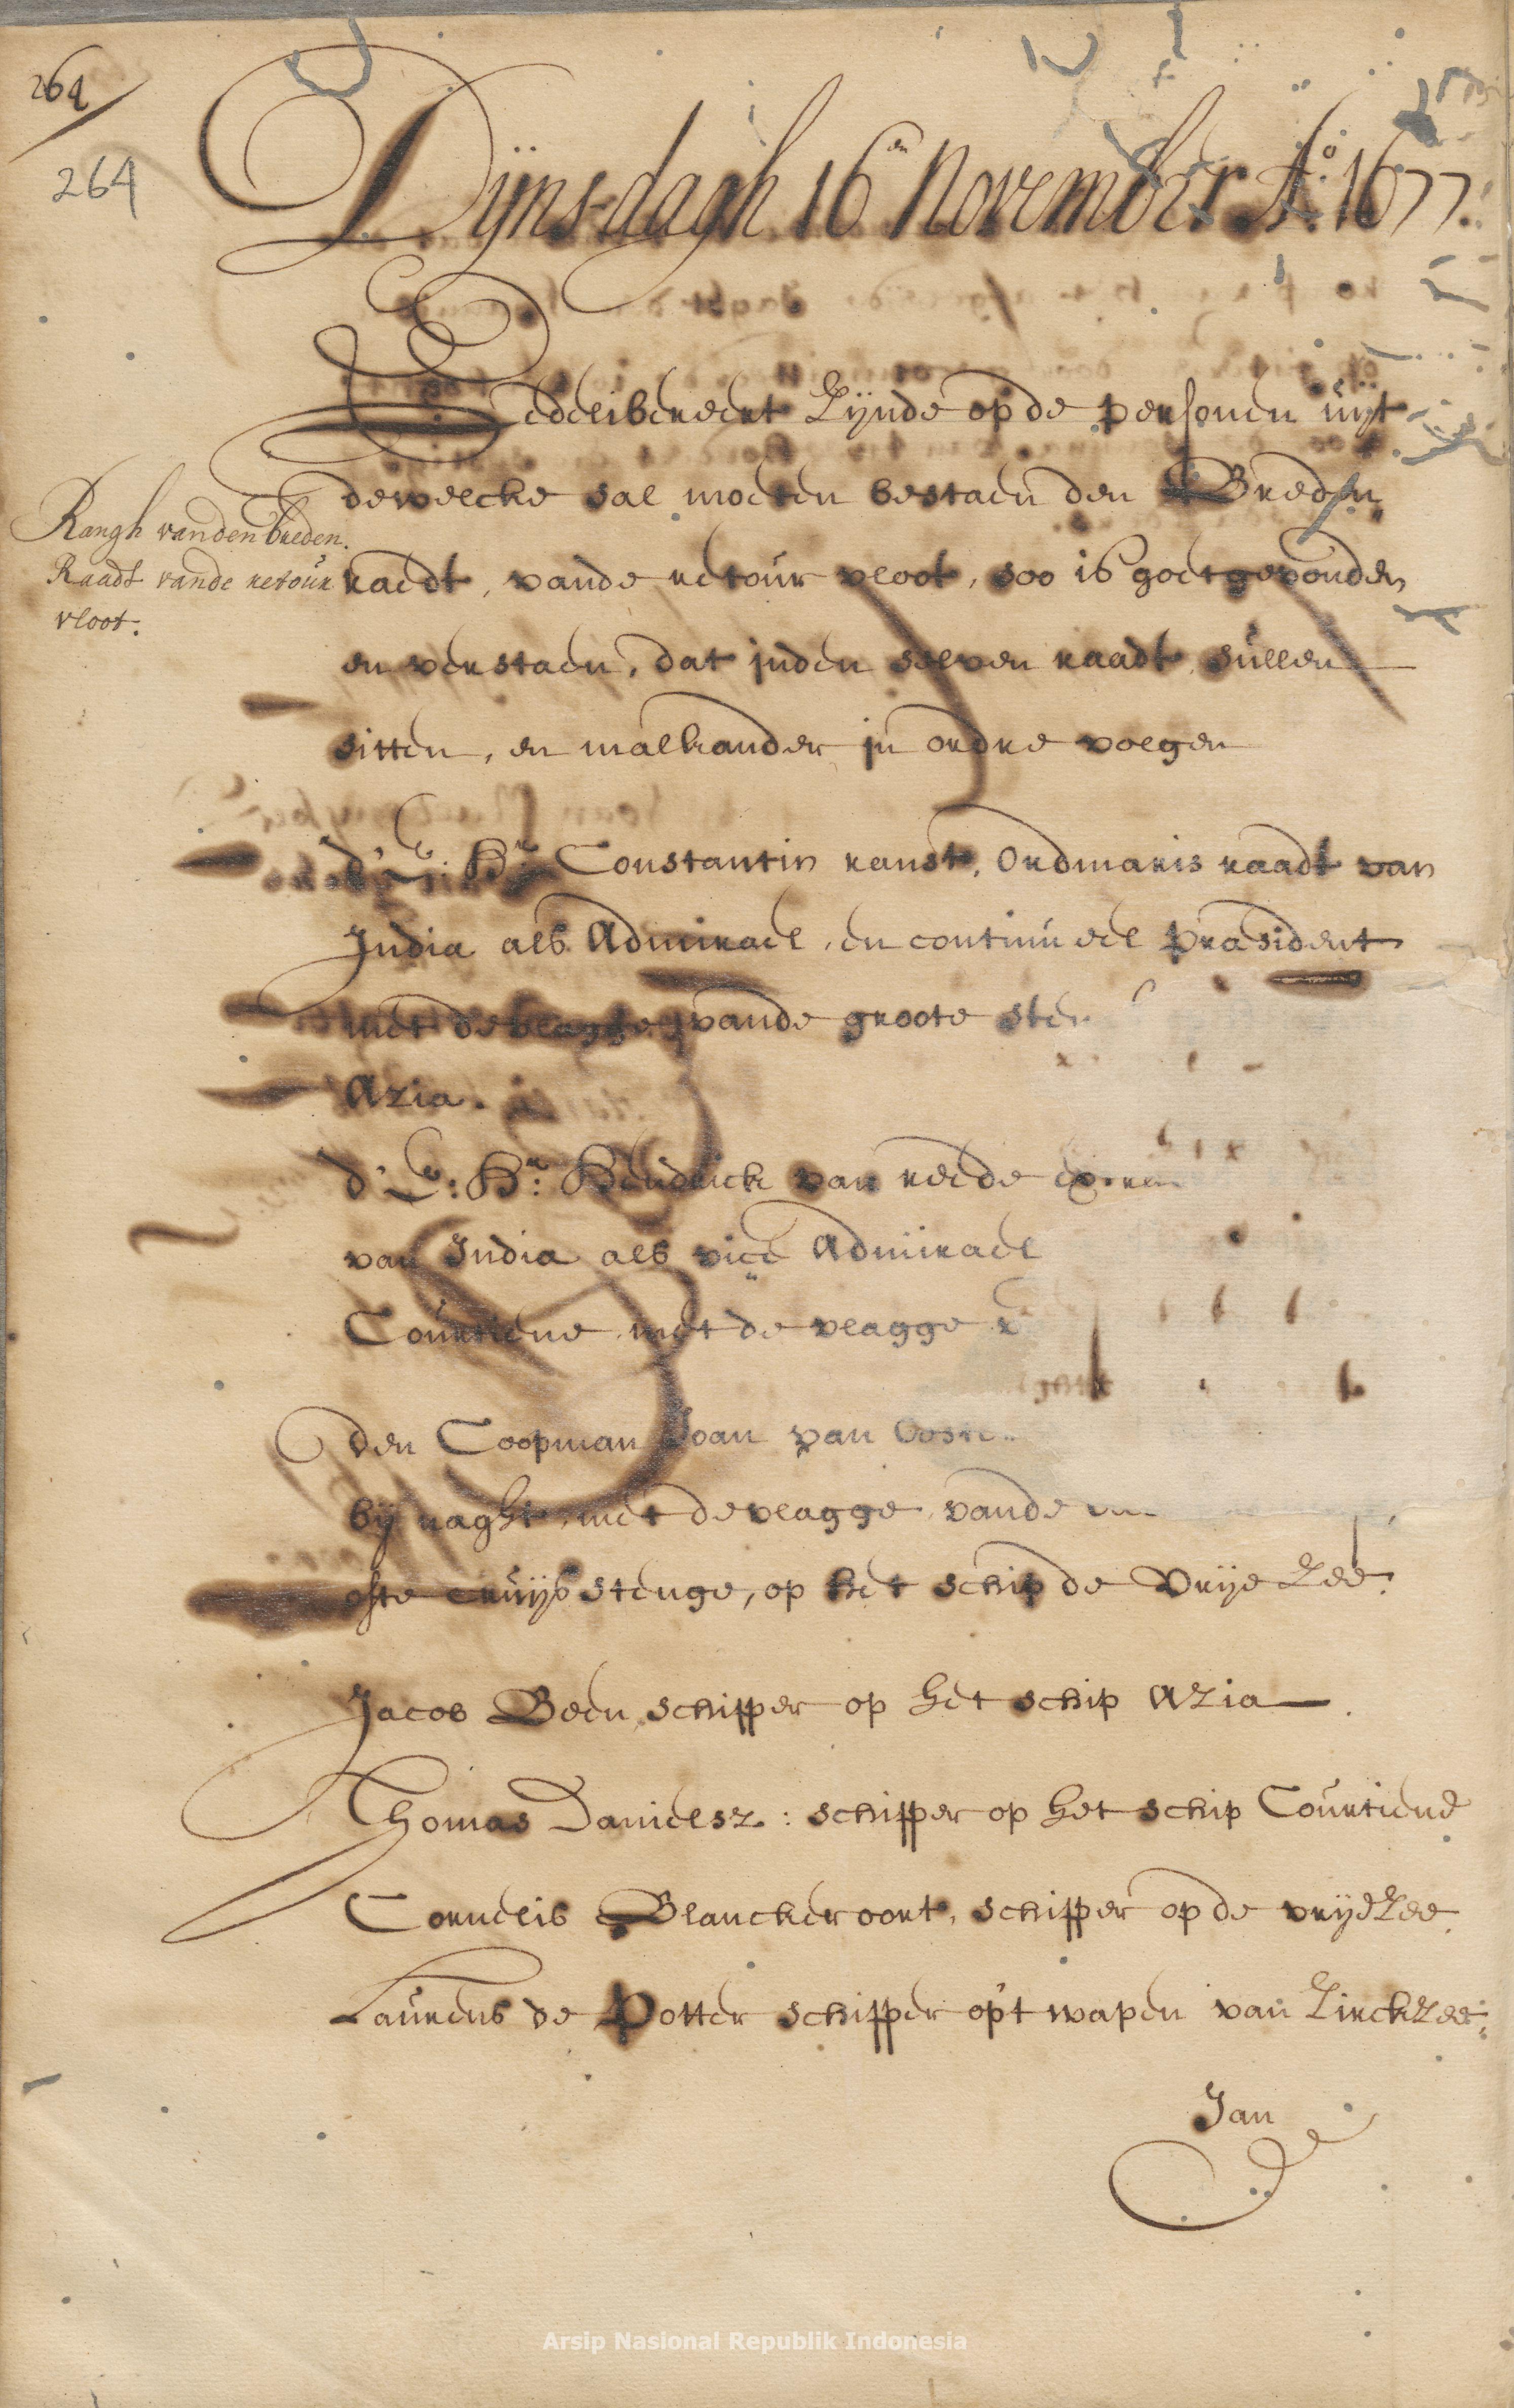 264
264
Dijnsdagh 16en November Ao. 1677.
Gedelibereert zijnde op de personen uijt
dewelcke sal moeten bestaen den Breden
Rangh vanden breden.
Raadt vande retour
vloot.
raedt, vande retour vloot, soo is goetgevonden
en verstaen, dat inden selven raadt, sullen
sitten, en malkander in ordre volgen
d' E: Hr: Constantin ranst, Ordinaris raadt van
India als Admirael, en continueel President
met de vlagge vande groote
Azia.
d' E: Hr: Hendrick van reede
van India als vice Admirael
Courtiene met de vlagge
den Coopman Joan van
bij naght, met de vlagge, vande
ofte cruijs stenge, op het schip de Vrije Zee.
Jacob Been, schipper op het schip Azia
Thomas Danielsz: schipper op het schip Courtiene
Cornelis Blanckeroort, schipper op de vrije Zee
Laurens de Potter schipper op't wapen van Zirckzee
Jan
Arsip Nasional Republik Indonesia